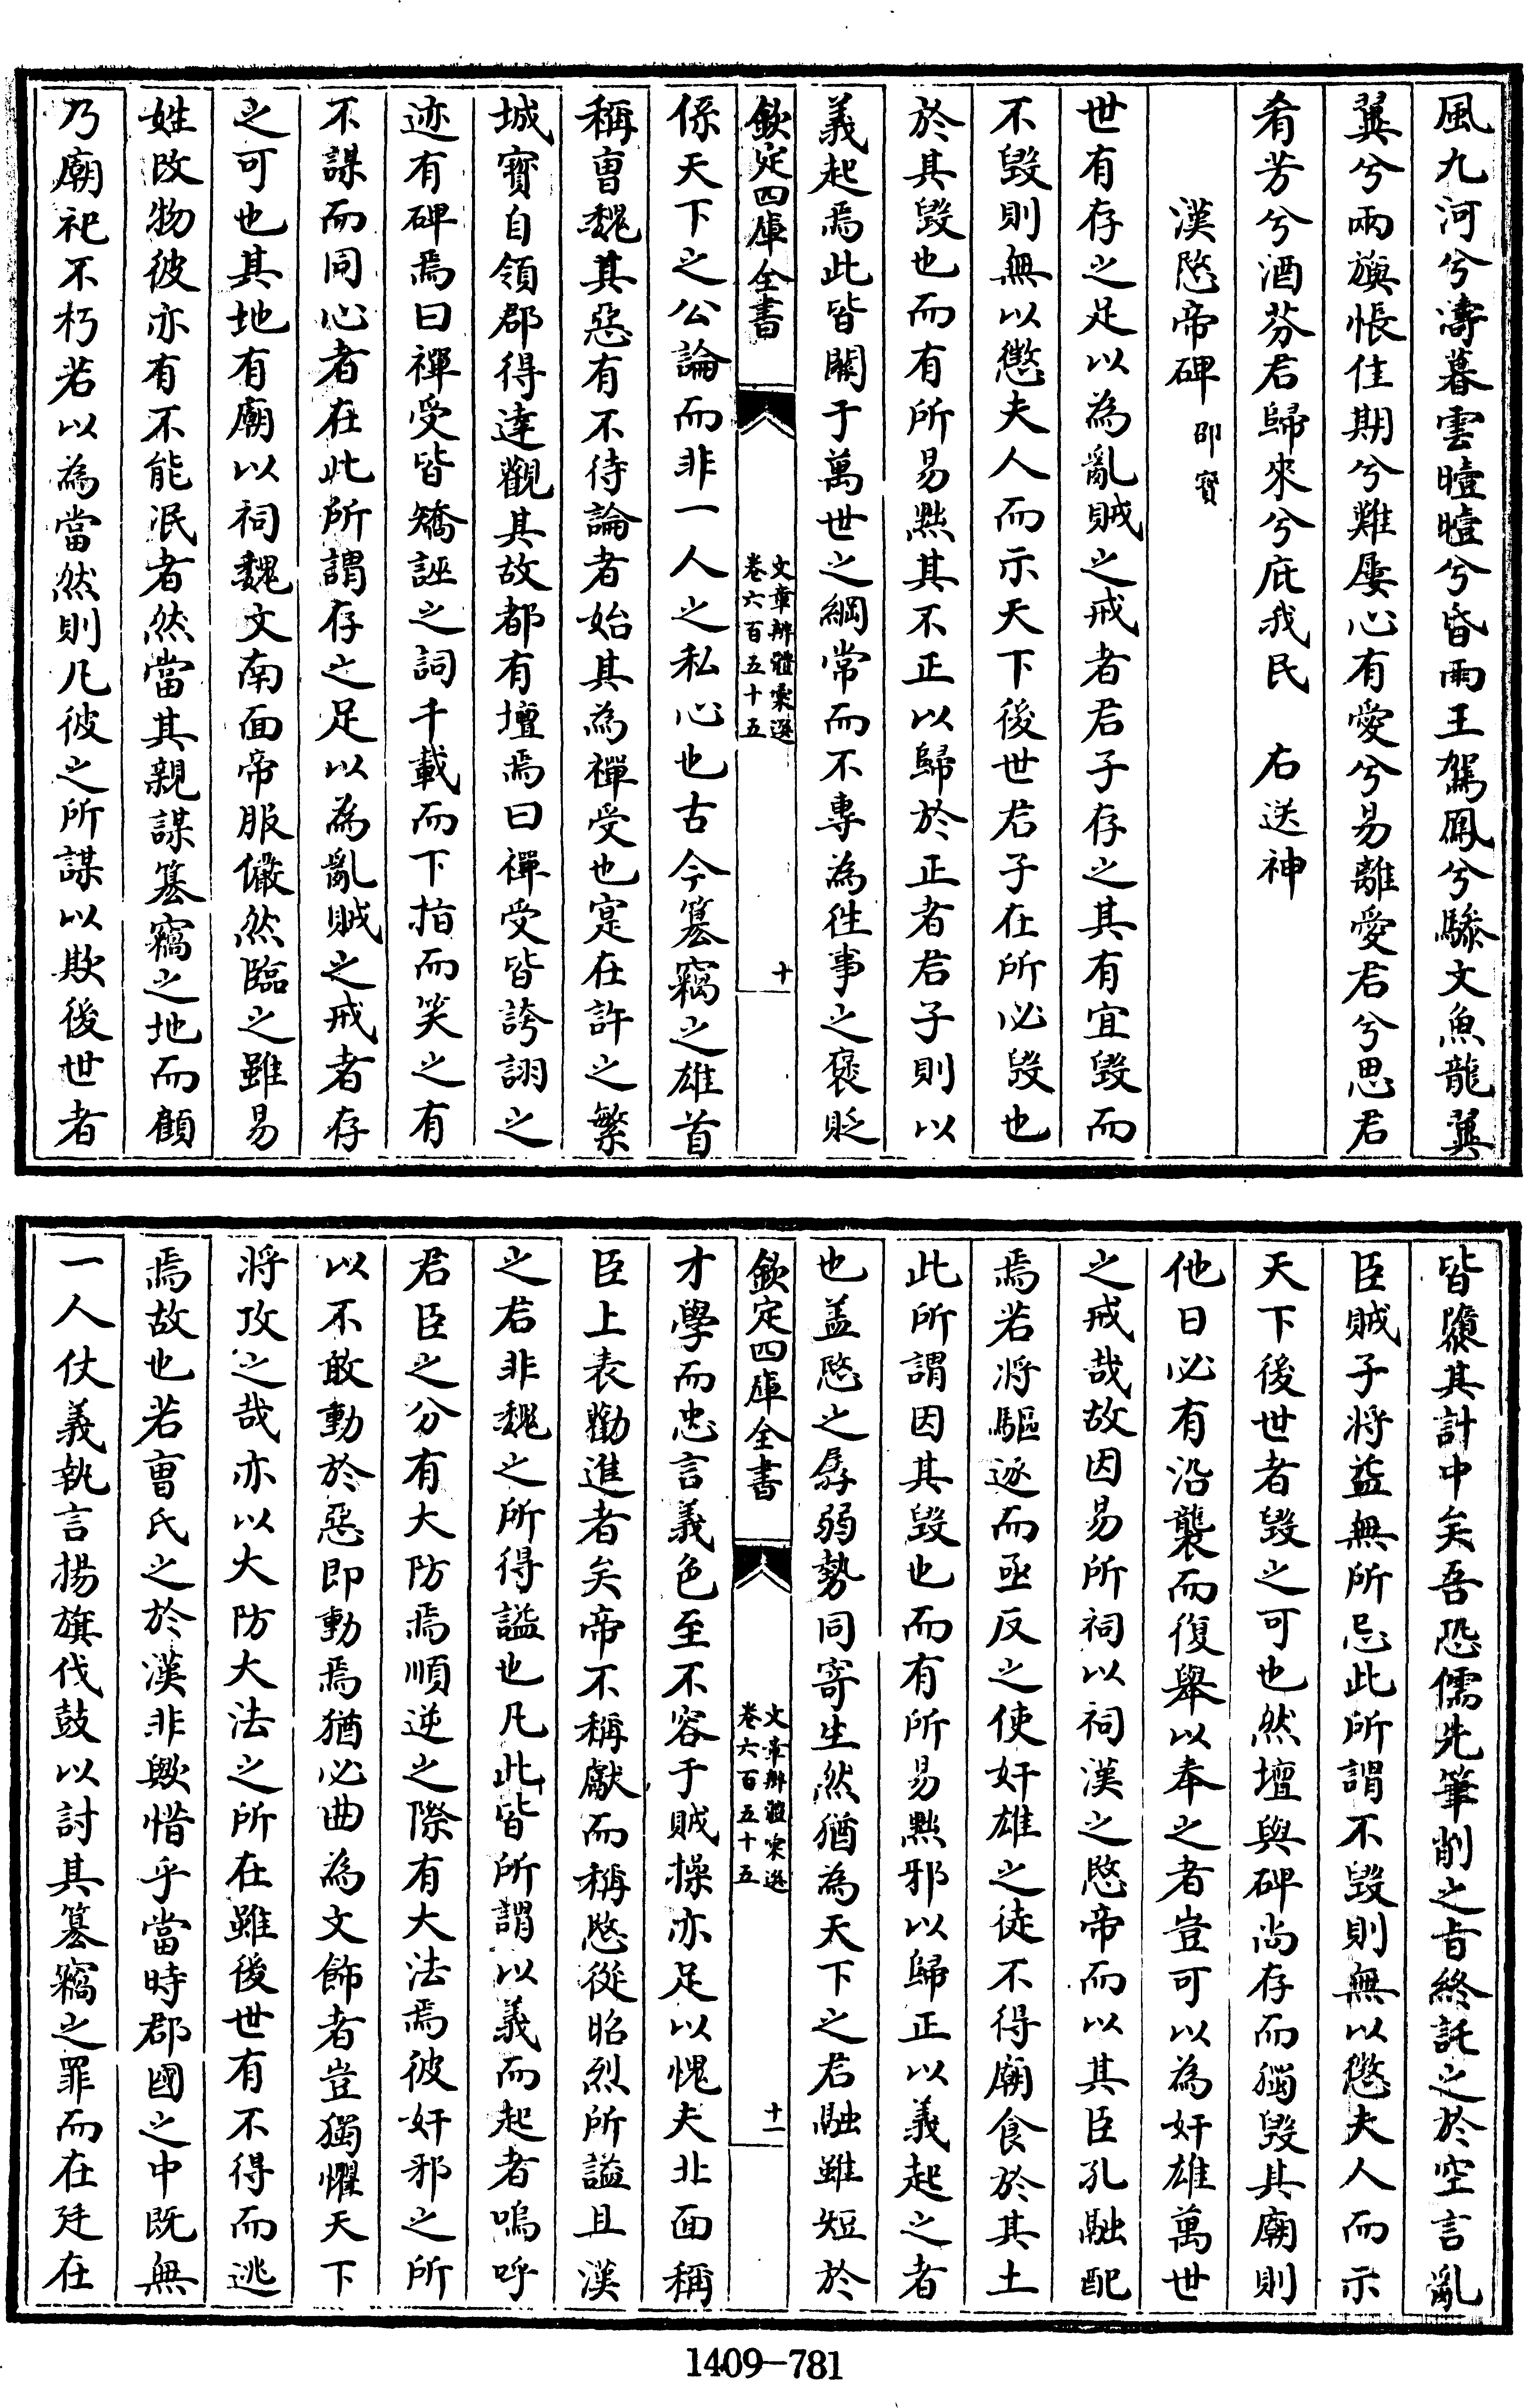 風九河兮濤暮雲曀曀兮昏雨王駕鳳兮驂文魚龍翼
翼兮兩旟悵佳期兮難屢心有愛兮易離愛君兮思君
肴芳兮酒芬君歸來兮庇我民　右送神
漢愍帝碑　邵寳
世有存之足以為亂賊之戒者君子存之其有宜毀而
不毀則無以懲夫人而示天下後世君子在所必毀也
於其毀也而有所易㸃其不正以歸於正者君子則以
義起焉此皆關于萬世之綱常而不專為徃事之褒貶
欽定四庫全書　文章辨體彚選　卷六百五十五　十
係天下之公論而非一人之私心也古今簒竊之雄首
稱曹魏其惡有不待論者始其為禪受也寔在許之繁
城寳自領郡得達觀其故都有壇焉曰禪受皆誇詡之
迹有碑焉曰禪受皆矯誣之詞千載而下指而笑之有
不謀而同心者在此所謂存之足以為亂賊之戒者存
之可也其地有廟以祠魏文南面帝服儼然臨之雖易
姓改物彼亦有不能泯者然當其親謀簒竊之地而顧
乃廟祀不朽若以為當然則凡彼之所謀以欺後世者
皆隳其計中矣吾恐儒先筆削之㫖終託之於空言亂
臣賊子將益無所忌此所謂不毀則無以懲夫人而示
天下後世者毀之可也然壇與碑尚存而獨毀其廟則
他日必有沿襲而復舉以奉之者豈可以為奸雄萬世
之戒哉故因易所祠以祠漢之愍帝而以其臣孔融配
焉若將驅逐而亟反之使奸雄之徒不得廟食於其土
此所謂因其毀也而有所易㸃邪以歸正以義起之者
也盖愍之孱弱勢同寄生然猶為天下之君融雖短於
欽定四庫全書　文章辨體彚選　卷六百五十五　十一
才學而忠言義色至不容于賊操亦足以愧夫北面稱
臣上表勸進者矣帝不稱獻而稱愍從昭烈所謚且漢
之君非魏之所得謚也凡此皆所謂以義而起者嗚呼
君臣之分有大防焉順逆之際有大法焉彼奸邪之所
以不敢動於惡即動焉猶必曲為文飾者豈獨懼天下
將攻之哉亦以大防大法之所在雖後世有不得而逃
焉故也若曹氏之於漢非歟惜乎當時郡國之中既無
一人仗義執言揚旗伐鼓以討其簒竊之罪而在廷在